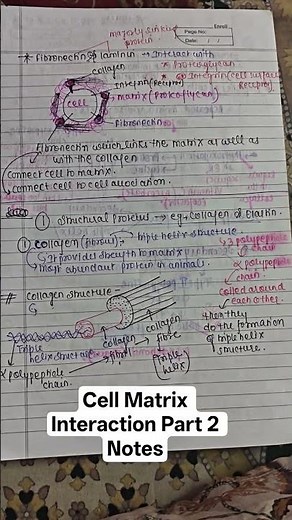 majorly sinking protein
Enroll
Page No:
Date: / /
* Fibronectin & laminin → Interact with
collagen
* Proteoglycan
* Integrin (cell surface
Receptor)
Integrin (Receptor)
cell
matrix (Proteoglycan)
Fibronectin
Fibronectin which links the matrix as well as
with the collagen
connect cell to matrix.
connect cell to cell association.
① Structural proteins → eg - collagen & Elastin.
① Collagen (fibrous) :- triple helix structure.
↳ It provides strength to matrix
↳ most abundant protein in animals.
↳ 3 polypeptide
α chain
α polypeptide
chain
coiled around
each other.
then they
do the formation
of triple helix
structure.
# Collagen structure -
Triple
helix structure
collagen
fibril
collagen
fibre
α polypeptide
chain.
Triple
helix
Cell Matrix
Interaction Part 2
Notes